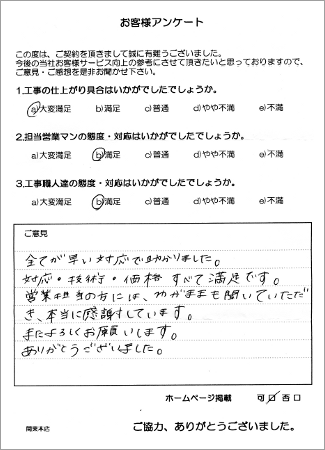 お客様アンケート
この度は、ご契約を頂きまして誠に有難うございました。
今後の当社お客様サービス向上の参考にさせて頂きたいと思っておりますので、
ご意見・ご感想を是非お聞かせ下さい。
1.工事の仕上がり具合はいかがでしたでしょうか。
a)大変満足 b)満足 c)普通 d)やや不満 e)不満
2.担当営業マンの態度・対応はいかがでしたでしょうか。
a)大変満足 b)満足 c)普通 d)やや不満 e)不満
3.工事職人達の態度・対応はいかがでしたでしょうか。
a)大変満足 b)満足 c)普通 d)やや不満 e)不満
ご意見
全てが早い対応で助かりました。
対応・技術・価格 すべて満足です。
営業担当の方には、わがままも聞いていただだ
き、本当に感謝しています。
またよろしくお願いします。
ありがとうございました。
ホームページ掲載 可口 否口
関東本店
ご協力、ありがとうございました。